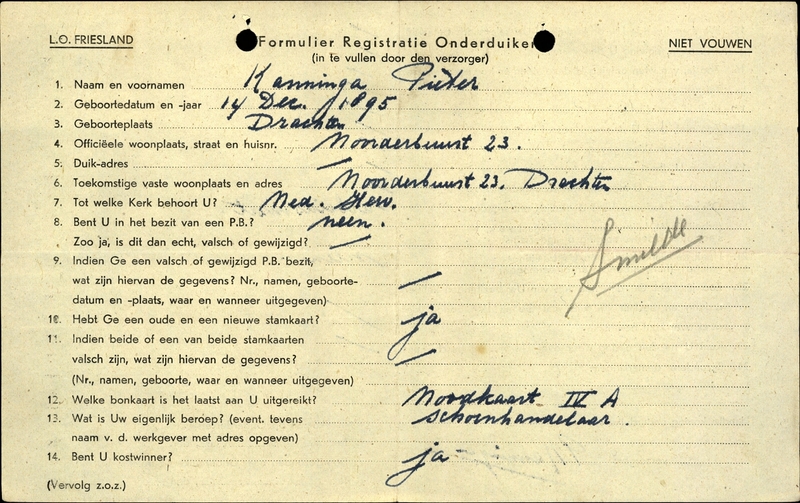 L.O. FRIESLAND
Formulier Registratie Onderduiker
NIET VOUWEN
(in te vullen door den verzorger)
1. Naam en voornamen Kanninga Pieter
2. Geboortedatum en -jaar 14 Dec. 1895
3. Geboorteplaats Drachten
4. Officiëele woonplaats, straat en huisnr. Noorderbuurt 23.
5. Duik-adres —
6. Toekomstige vaste woonplaats en adres Noorderbuurt 23. Drachten
7. Tot welke Kerk behoort U? Ned. Herv.
8. Bent U in het bezit van een P.B.? neen.
Zoo ja, is dit dan echt, valsch of gewijzigd? —
Smilde
9. Indien Ge een valsch of gewijzigd P.B. bezit,
wat zijn hiervan de gegevens? Nr., namen, geboorte- —
datum en -plaats, waar en wanneer uitgegeven)
10. Hebt Ge een oude en een nieuwe stamkaart? ja
11. Indien beide of een van beide stamkaarten
valsch zijn, wat zijn hiervan de gegevens? —
(Nr., namen, geboorte, waar en wanneer uitgegeven)
12. Welke bonkaart is het laatst aan U uitgereikt? Noodkaart IV A
13. Wat is Uw eigenlijk beroep? (event. tevens schoenhandelaar.
naam v. d. werkgever met adres opgeven)
14. Bent U kostwinner? ja
(Vervolg z.o.z.)